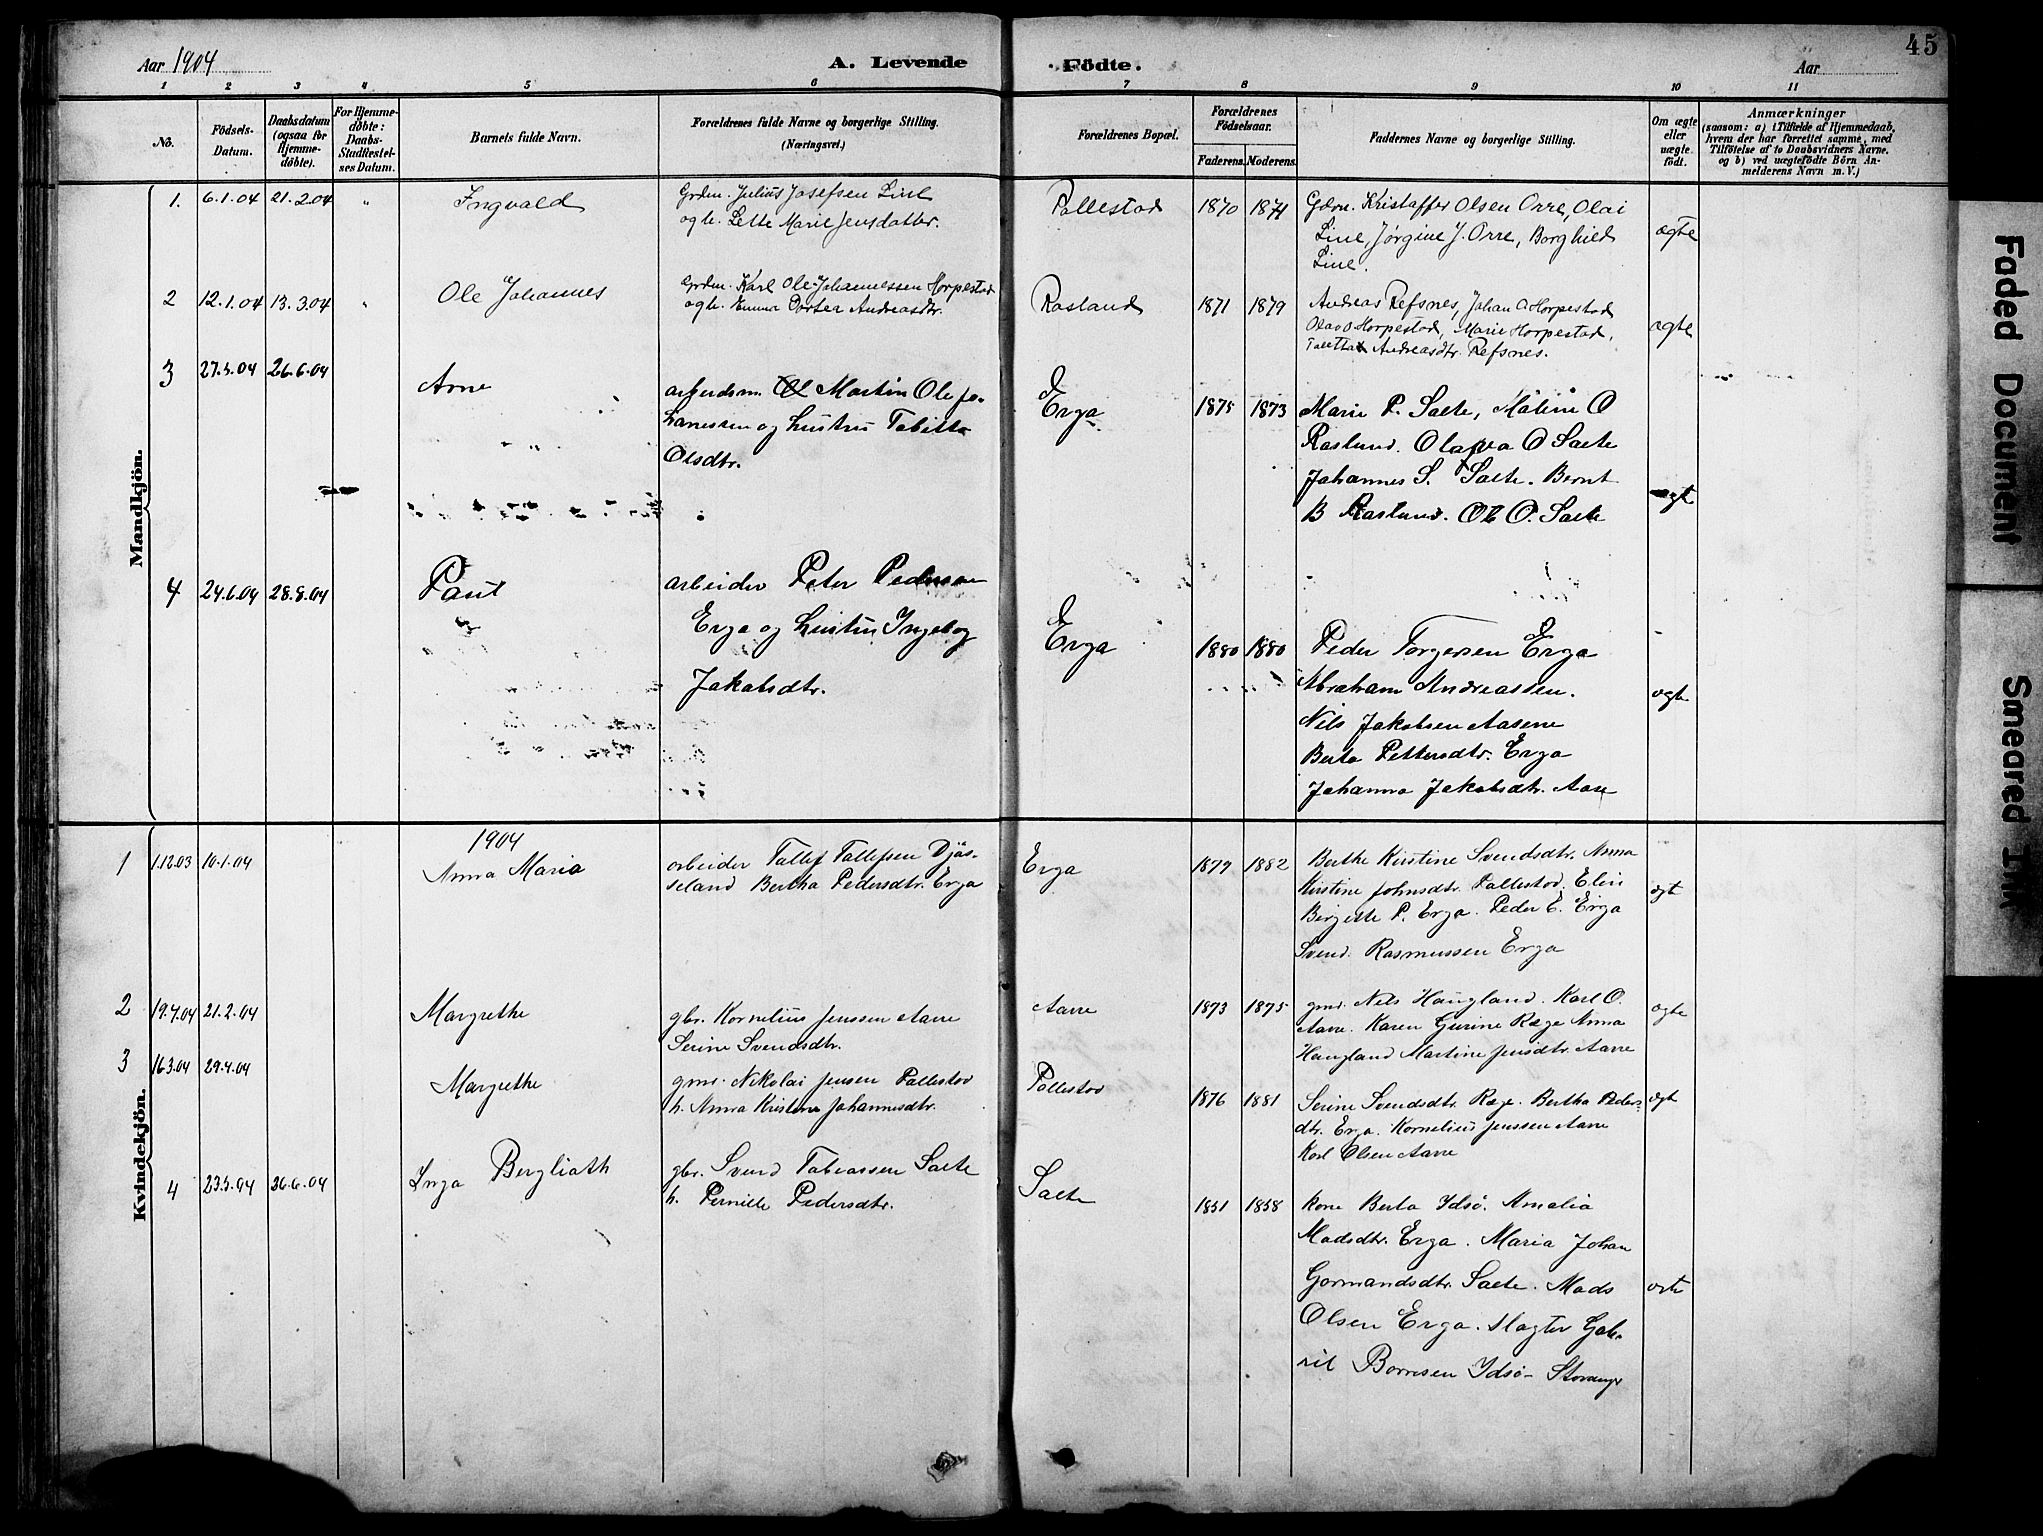 45
Aar 1904
A. Levende
Fødte.
Aar
1 2 3 4 5 6 7 8 9 10 11
No.
Födsels-
Datum.
Daabsdatum
(ogsaa for
Hjemme-
döbte).
For Hjemme-
döbte:
Daabs-
Stadfæstel-
ses Datum.
Barnets fulde Navn.
Forældrenes fulde Navne og borgerlige Stilling.
(Næringsvei.)
Forældrenes Bopæl.
Forældrenes
Födselsaar.
Faderens. Moderens.
Faddernes Navne og borgerlige Stilling.
Om ægte
eller
uægte
födt.
Anmærkninger
(saasom: a) i Tilfælde af Hjemmedaab,
hvem der har forrettet samme, med
Tilföielse af to Daabsvidners Navne.
og b) ved uægtefödte Börn An-
melderens Navn m. V.)
Mandkjön.
1. 6.1.04 21.2.04 " Ingvald
Grdm. Julius Josefsen Line
og h. Lette Marie Jensdatter.
Pollestad 1870 1871
Gdrm. Kristoffer Olsen Orre, Olai
Line, Jørgine J. Orre, Borghild
Line.
ægte
2 12.1.04 13.3.04 " Ole Johannes
Grdm. Karl Ole Johannessen Horpestad
og h. Emma Dortea Andreasdtr.
Rosland 1871 1879
Andreas Refsnes, Johan O Horpestad
Olav O Horpestad, Marie Horpestad,
Andreasdtr. Refsnes.
ægte
3 27.5.04 26.6.04 Arne
arbeidsm. Martin Ole Jo-
hanessen og hustru Tabitta
Olsdtr.
Erga 1875 1873
Marie P. Salte, Maline O
Raslund. Olava O Salte
Johannes S. Salte. Bernt
B Raslund. Ole O. Salte
ægte
4 24.6.04 28.8.04 Paul
arbeider Peter Pedersen
Erga og hustru Ingebog
Jakobsdtr.
Erga 1880 1880
Peder Torgersen Erga
Abraham Andreassen.
Nils Jakobsen Aasene
Berta Pettersdtr. Erga
Johanna Jakobsdtr. Aase
ægte
Kvindekjön.
1904
1 1.12.03 10.1.04 Anna Maria
arbeider Tollef Tollefsen Djøs-
seland Bertha Pedersdtr. Erga
Erga 1879 1882
Berthe Kirstine Svendsdtr. Anna
Kirstine Johnsdtr. Pollestad. Elin
Birgitte P. Erga. Peder E. Erga
Svend Rasmussen Erga
ægt
2 21.2.04 Margrethe
gbr. Kornelius Jenssen Aarre
Serine Svendsdtr.
Aarre 1873 1875
gmd. Nils Haugland. Karl O.
Aarre. Karen Gurine Ræge Anna
Haugland Martine Jensdtr. Aarre
ægte
3 16.3.04 29.4.04 Margrethe
gmd. Nikolai Jensen Pollestad
h. Anna Kristine Johannesdtr.
Pollestad 1876 1881
Serine Svendsdtr. Ræge. Bertha Peders-
dtr. Erga. Kornelius Jenssen Aarre
Karl Olsen Aarre
ægt
4 23.5.04 26.6.04 Inga Berglioth
gbr. Svend Tobiassen Salte
h. Pernille Pedersdtr.
Salte 1851 1858
kone Berta Idsø. Amalia
Madsdtr. Erga. Maria Johan
Gormandsdtr. Salte. Mads
Olsen Erga. Slagter Gab-
riel Bornesen Idsø- Stavanger
ægte
Faded Document
Smeared Ink